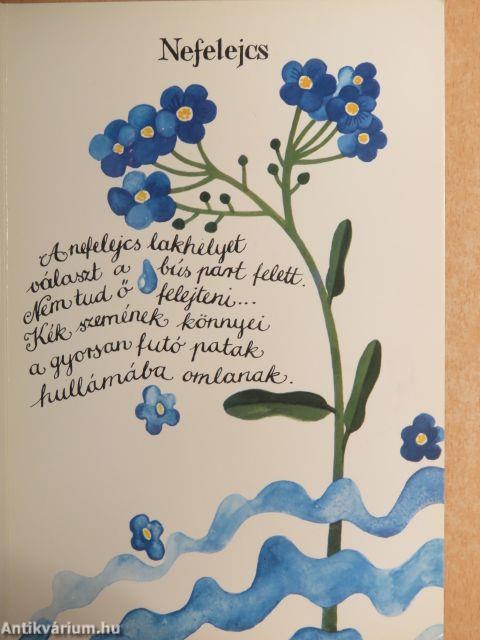 Nefelejcs
A nefelejcs lakhelyet
választ a bús part felett.
Nem tud ő felejteni...
Kék szemének könnyei
a gyorsan futó patak
hullámába omlanak.
Antikvárium.hu